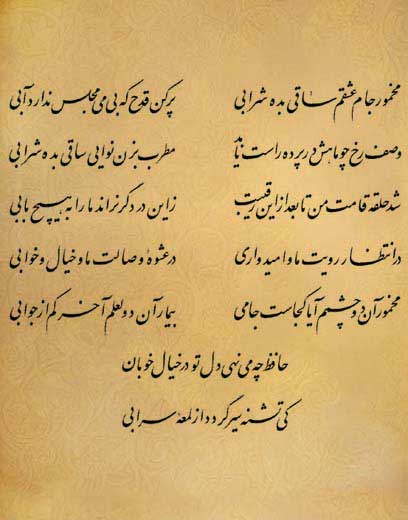 مخمور جام عشقم ساقی بده شرابی پر کن قدح که بی می مجلس ندارد آبی
وصف رخ چو ماهش در پرده راست ناید مطرب بزن نوایی ساقی بده شرابی
شد حلقه قامت من تا بعد از این رقیبت زاین در دگر نراند ما را به هیچ بابی
در انتظار رویت ما و امیدواری در عشوهٔ وصالت ما و خیال و خوابی
مخمور آن دو چشمم آیا کجاست جامی بیمار آن دو لعلم آخر کم از جوابی
حافظ چه می نهی دل تو در خیال خوبان
کی تشنه سیر گردد از لمعهٔ سرابی